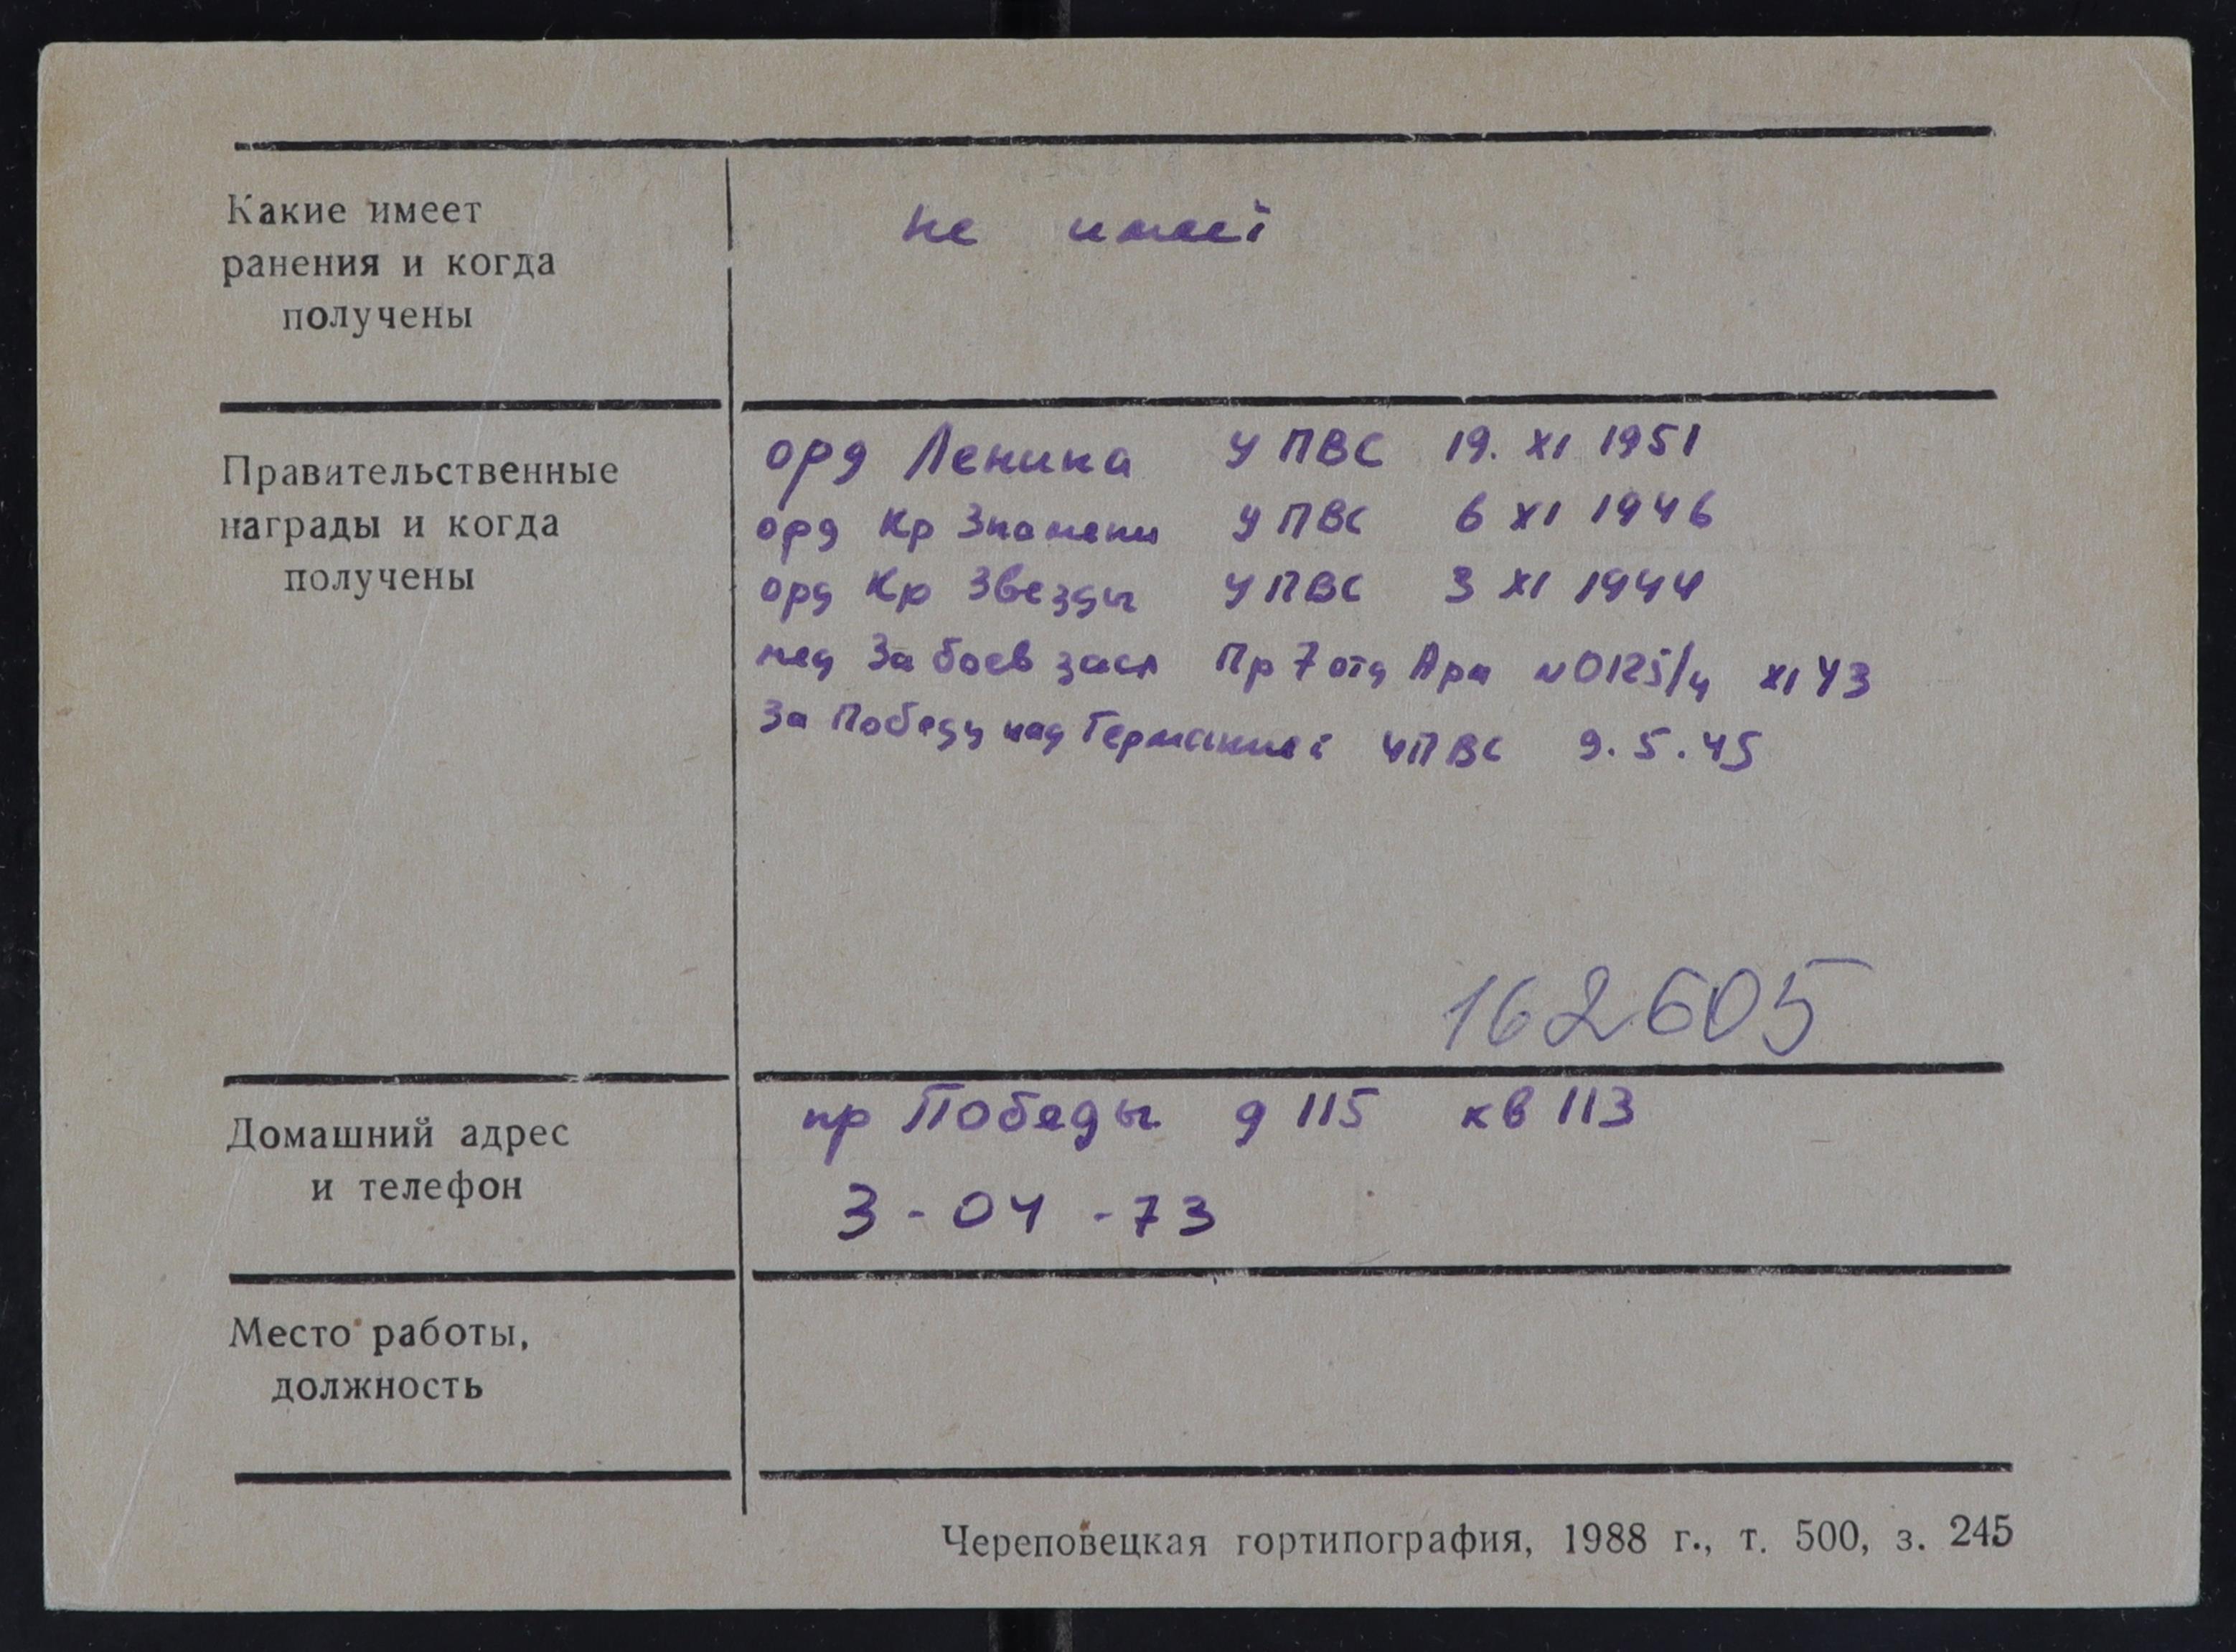 Какие имеет
ранения и когда
получены
не имеет
Правительственные
награды и когда
получены
орд Ленина У ПВС 19. XI 1951
орд Кр Знамени У ПВС 6 XI 1946
орд Кр Звезды У ПВС 3 XI 1944
мед За боев засл Пр 7 отд Арм № 0125/ч XI 43
За Победу над Германией УПВС 9.5.45
162605
Домашний адрес
и телефон
пр Победы д 115 кв 113
3-04-73
Место работы,
должность
Череповецкая гортипография, 1988 г., т. 500, з. 245